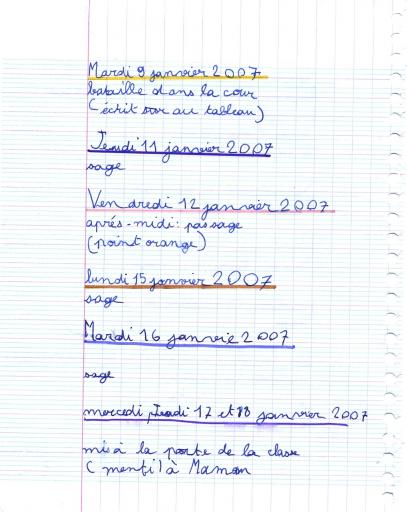 Mardi 9 janvier 2007
bataille dans la cour
(écrit sur au tableau)
Jeudi 11 janvier 2007
sage
Vendredi 12 janvier 2007
aprés-midi: pas sage
(point orange)
lundi 15 janvier 2007
sage
Mardi 16 janvie 2007
sage
mercedi, Jeudi 17 et 18 janvier 2007
mis à la porte de la classe
( mentil à Maman